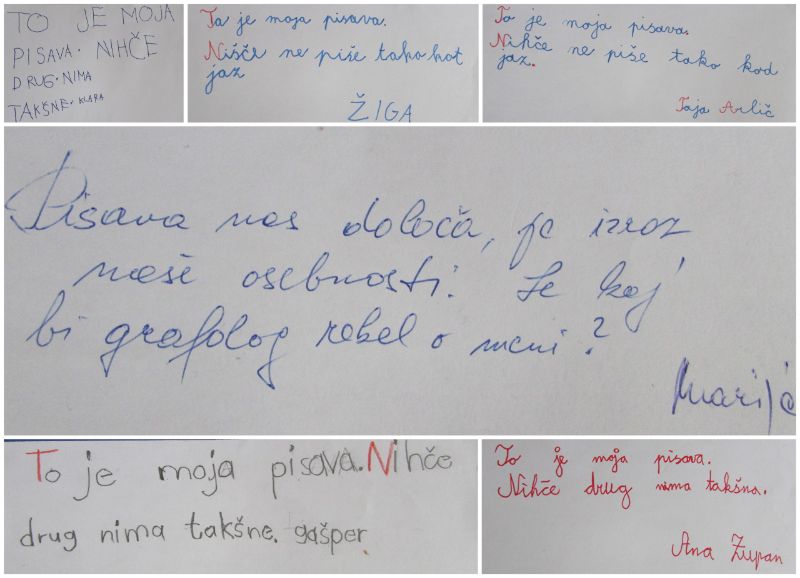 TO JE MOJA
PISAVA. NIHČE
DRUG. NIMA
TAKŠNE. KLARA
Ta je moja pisava.
Nišče ne piše tako kot
jaz
ŽIGA
To je moja pisava.
Nihče ne piše tako kod
jaz.
Taja Arlič
Pisava nas določa, je izraz
naše osebnosti. Le kaj
bi grafolog rekel o meni?
Marija
To je moja pisava. Nihče
drug nima takšne. gašper
To je moja pisava.
Nihče drug nima takšna.
Ana Župan